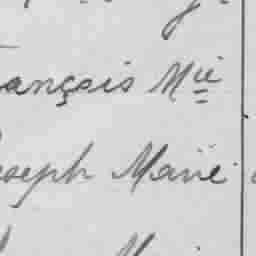 ançois Mie
oseph Marie